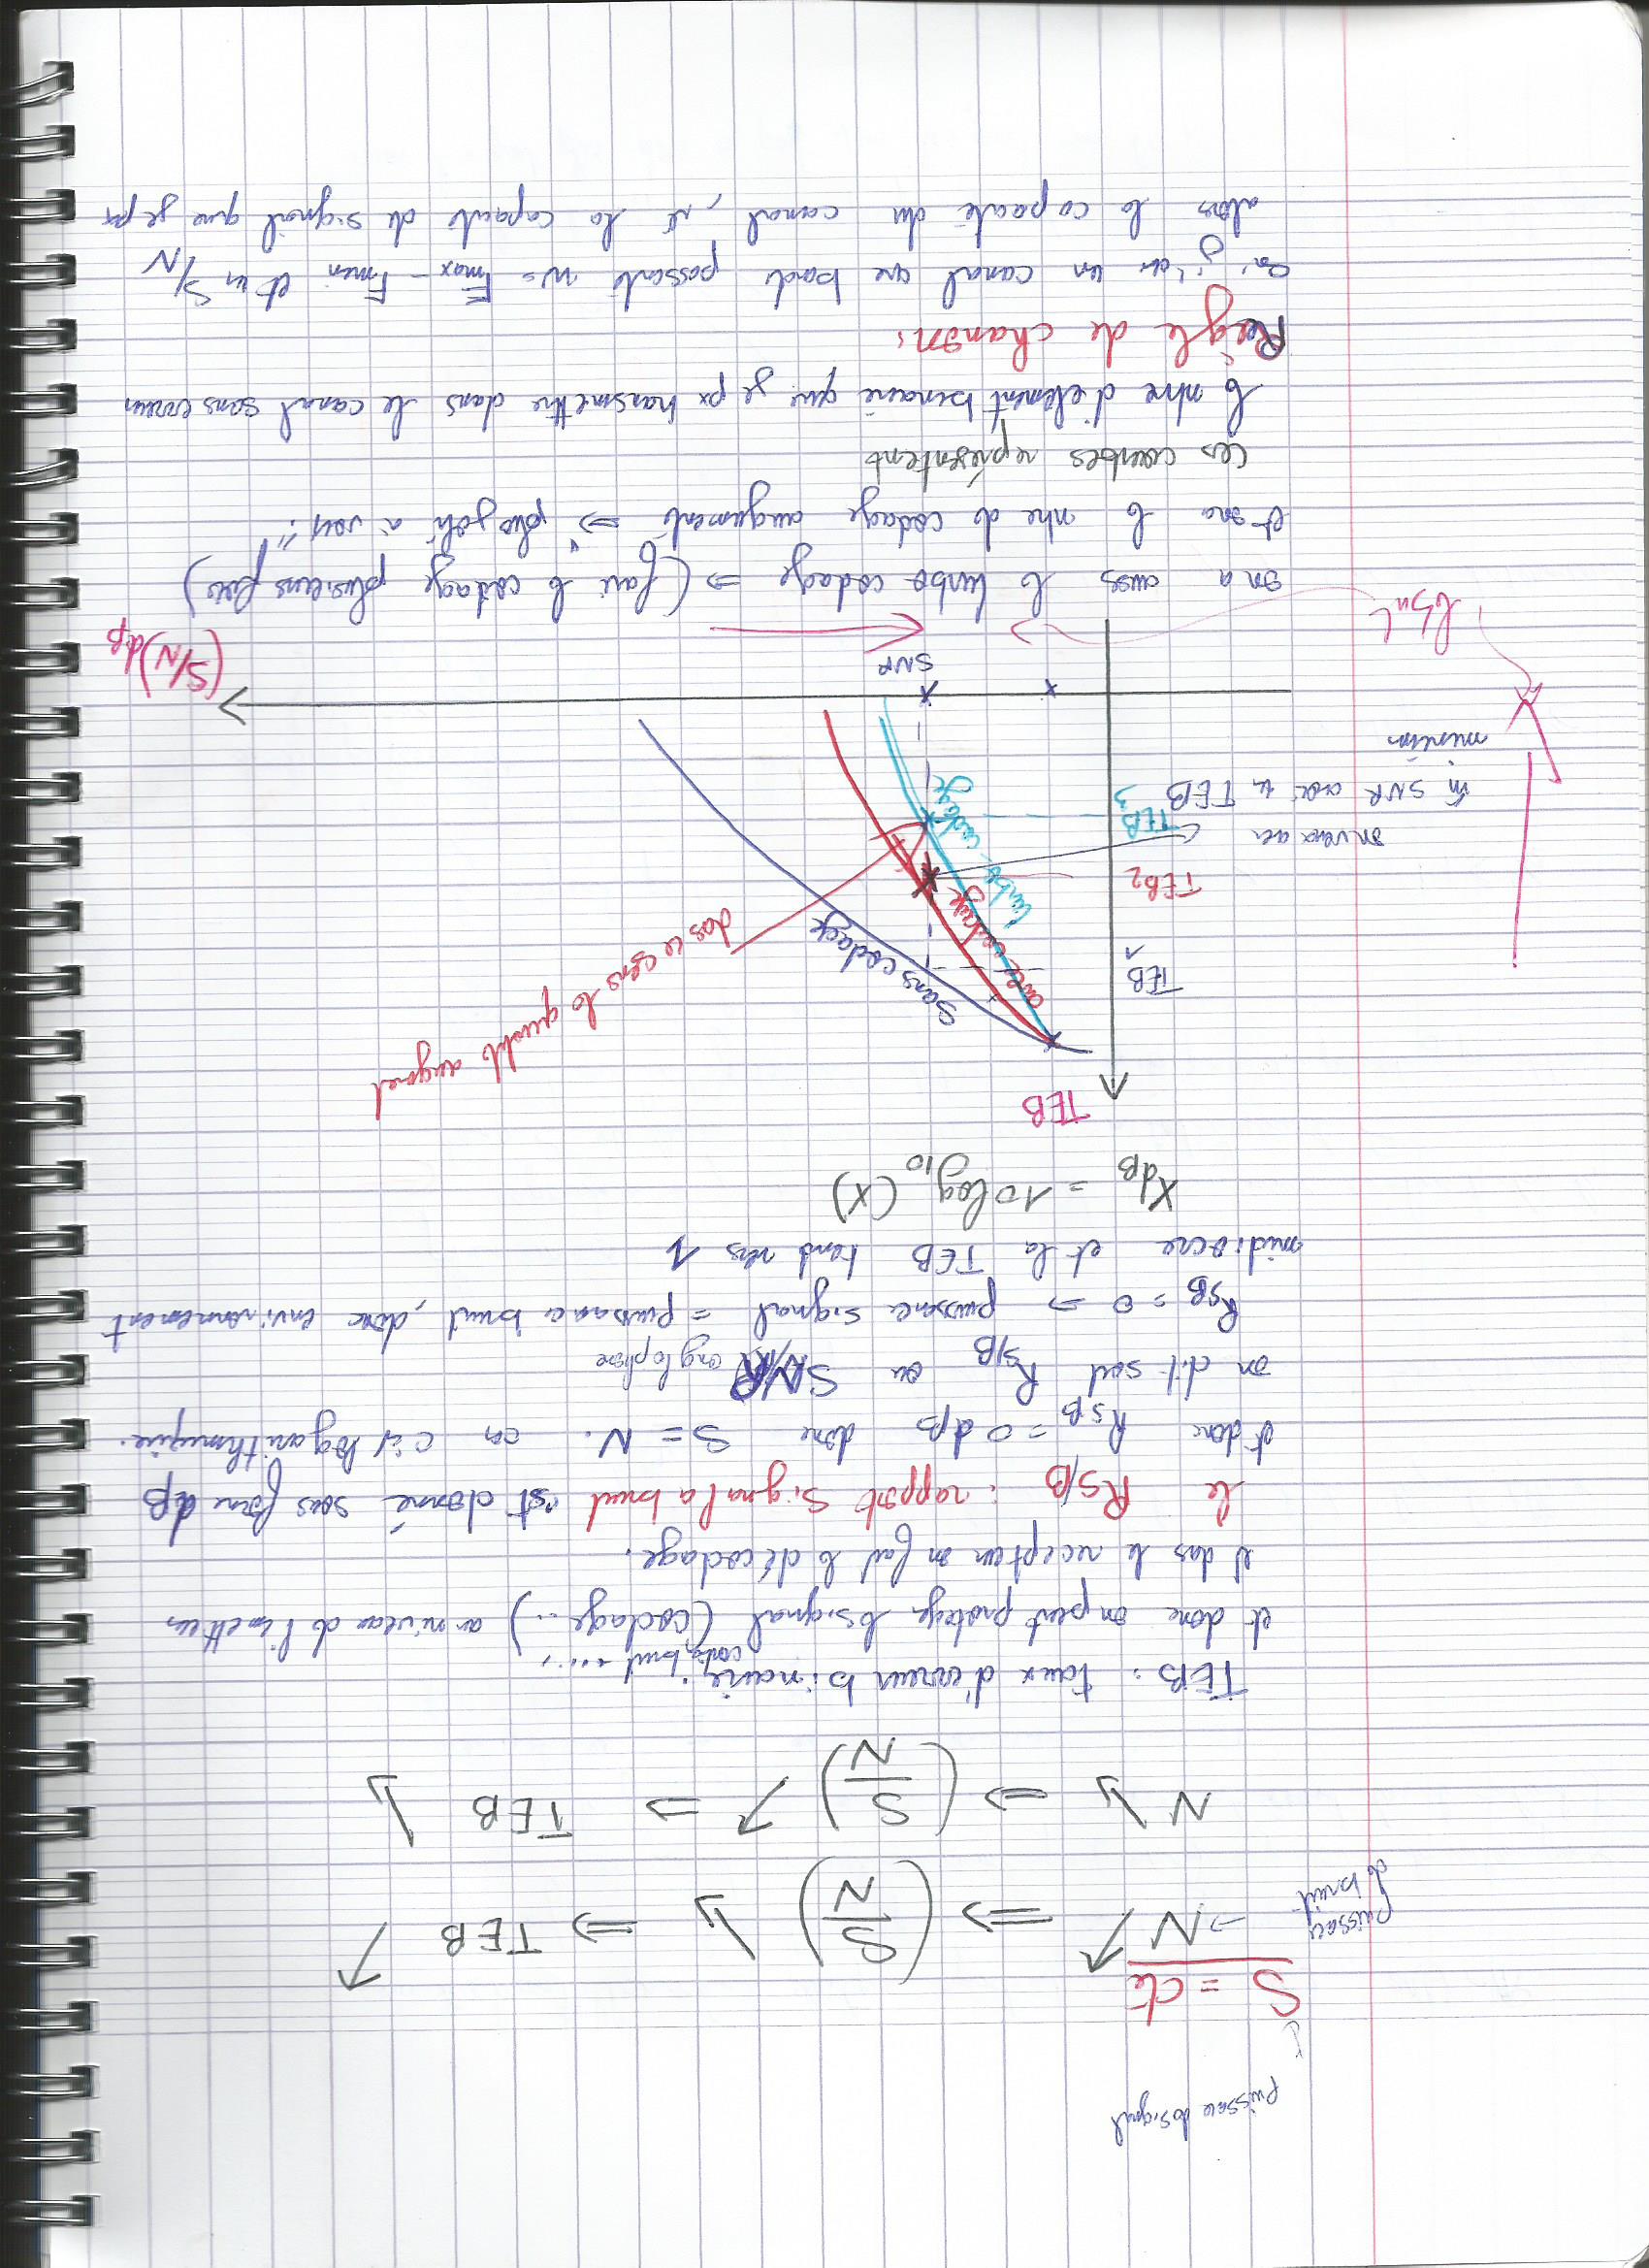 puissace de signal
S = cte
puissace de bruit → N ↗ ⇒ (S/N) ↘ ⇒ TEB ↗
N ↘ ⇒ (S/N) ↗ ⇒ TEB ↘
TEB : taux d'erreur binaire ;
et donc on peut protege le signal (codage ...) au niveau de l'emetteur
et das le recepteur on fait le décodage.
le RS/B : rapport signal a bruit est donné sous forme dB
et donc RSB = 0 dB donc S = N. en logarithmique.
on dit soit RS/B ou SNR anglophone
RSB = 0 → puissance signal = puissance bruit, donc environnement
médiocre et la TEB tend vers 1
XdB = 10 log10 (X)
TEB
TEB1
TEB2
TEB3
sans codage
avec codage
turbo-codage
das ce sens la qualité augment
SNR avec le TEB
minimum
SNR
(S/N)dB
on a auss le turbo codage ⇒ (faire le codage plusieurs fois)
et on a le nbre de codage augmente ⇒ "
ces courbes représentent
le nbre d'element binaire que je px transmettre dans le canal sans erreur
Règle de chanon:
un canal de bade passante W = Fmax - Fmin et un S/N
alors la capacité du canal, la capacité de signal que je px